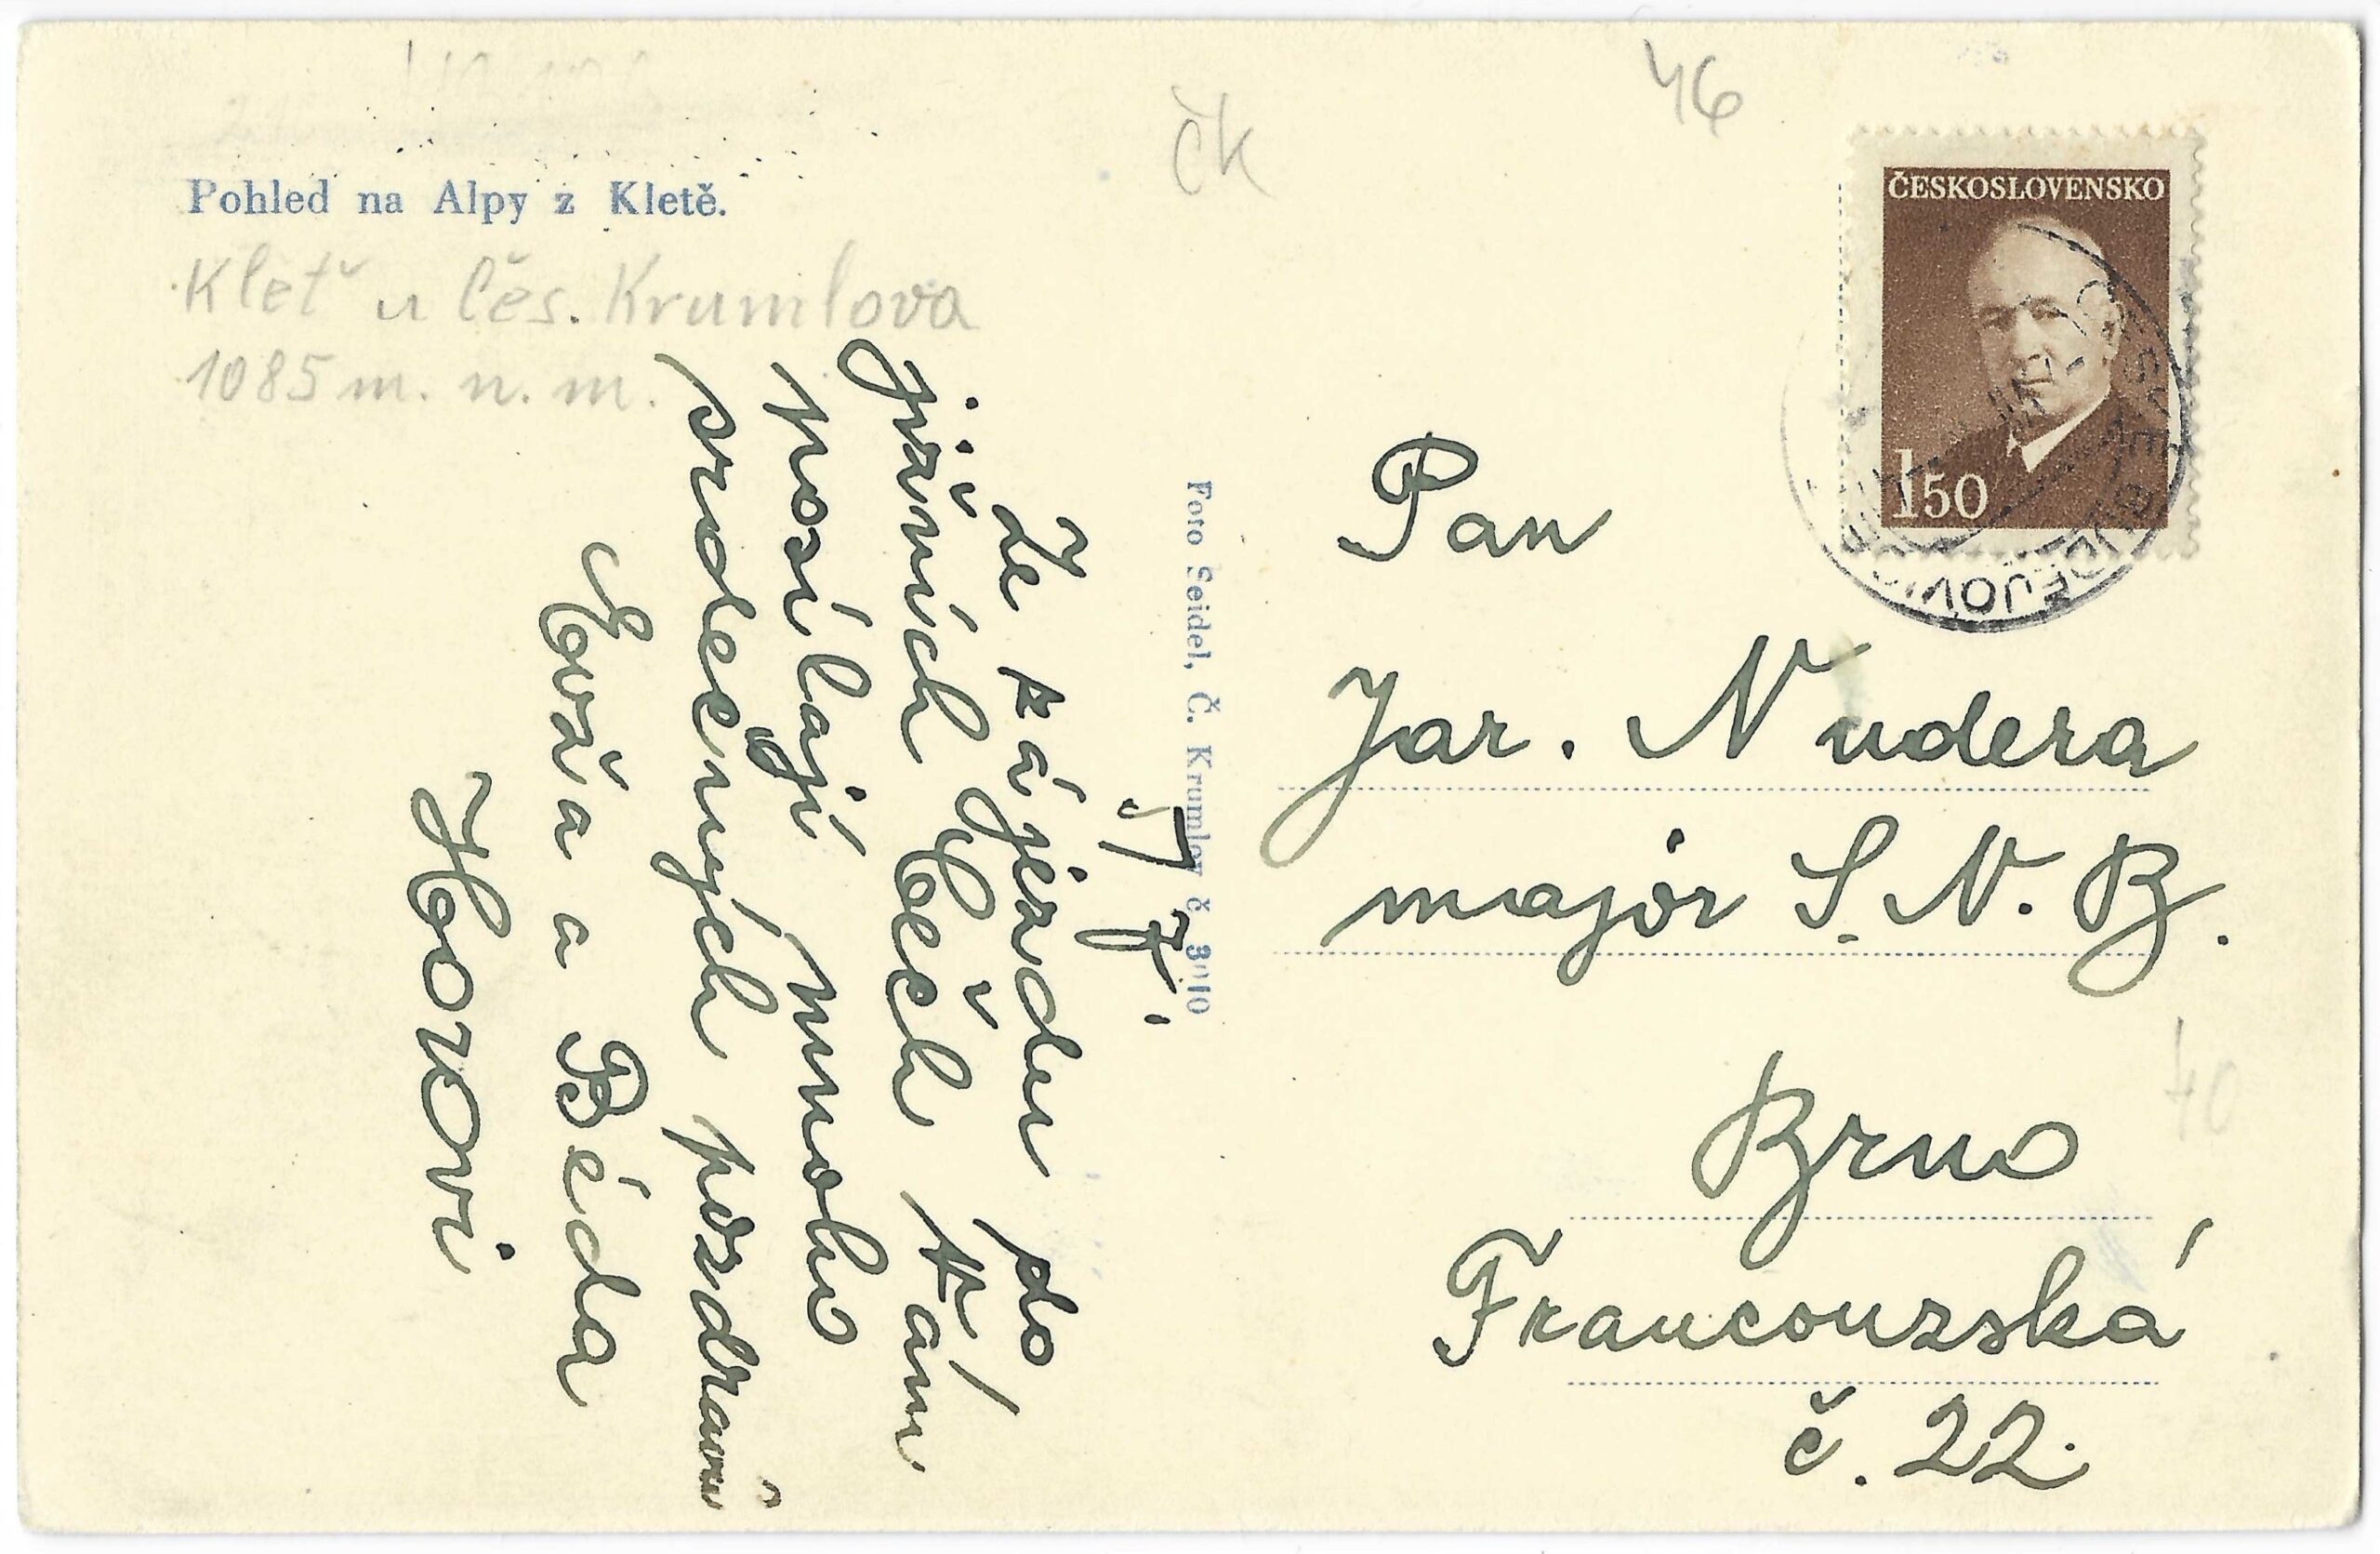 Pohled na Alpy z Kletě.
Kleť u Čes. Krumlova
1085 m. n. m.
ČK
46
ČESKOSLOVENSKO
150
Foto Seidel, Č. Krumlov č. 3010
Ze zájezdu do
jižních Čech Vám
posílají mnoho
srdečných pozdravů
a Béda
Horovi
Pan
Jar. Nudera
major S. N. B.
Brno
Francouzská
č. 22.
40